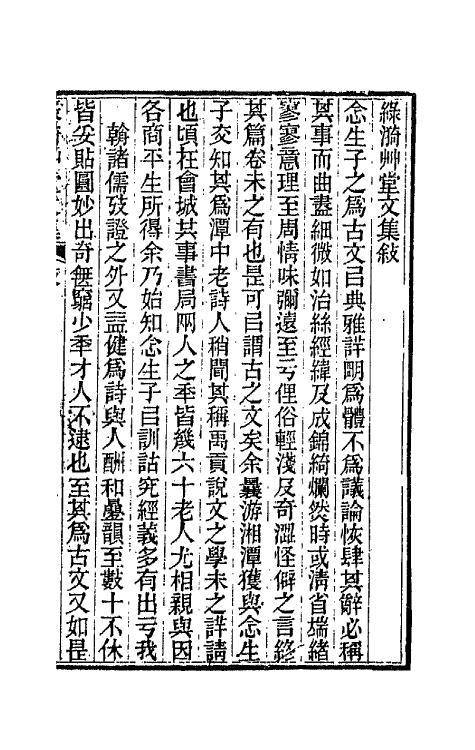 綠漪艸堂文集敍
念生子之爲古文㠯典雅詳朙爲體不爲議論恢肆其辭必稱
其事而曲盡細微如治絲經緯及成錦綺爛然時或淸省端緖
寥寥意理至周情味彌遠至亏俚俗輕淺及奇澀怪僻之言終
其篇卷未之有也是可㠯謂古之文矣余曩游湘潭獲與念生
子交知其爲潭中老詩人稍聞其稱禹貢說文之學未之詳請
也頃在會城共事書局兩人之年皆幾六十老人尤相親與因
各商平生所得余乃始知念生子㠯訓詁究經義多有出亏我
翰諸儒攷證之外又益健爲詩與人酬和曡韻至數十不休
皆妥貼圓妙出奇無窮少年才人不逮也至其爲古文又如是